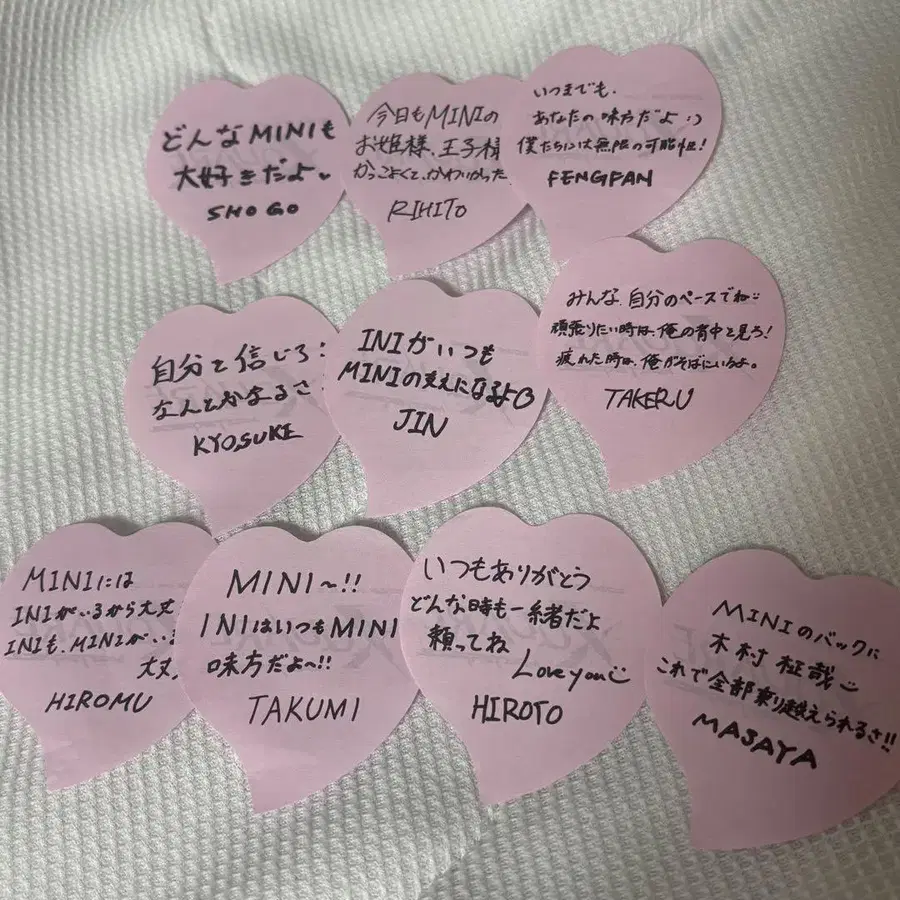 どんなMINIも
大好きだよ♥
SHOGO
今日もMINIの
お姫様、王子様
かっこよくて、かわいかった
RIHITO
いつまでも、
あなたの味方だよ:)
僕たちには無限の可能性!
FENGFAN
自分を信じろ!
なんとかなるさ
KYOSUKE
INIがいつも
MINIの支えになるよ
JIN
みんな、自分のペースでね
頑張りたい時は、俺の背中を見ろ!
疲れた時は、俺がそばにいるよ。
TAKERU
MINIには
INIがいるから大丈
INIも、MINIがい
大丈
HIROMU
MINI〜!!
INIはいつもMINI
味方だよ〜!!
TAKUMI
いつもありがとう
どんな時も一緒だよ
頼ってね
Love you
HIROTO
MINIのバックに
木村柾哉
これで全部乗り越えられるさ!!
MASAYA